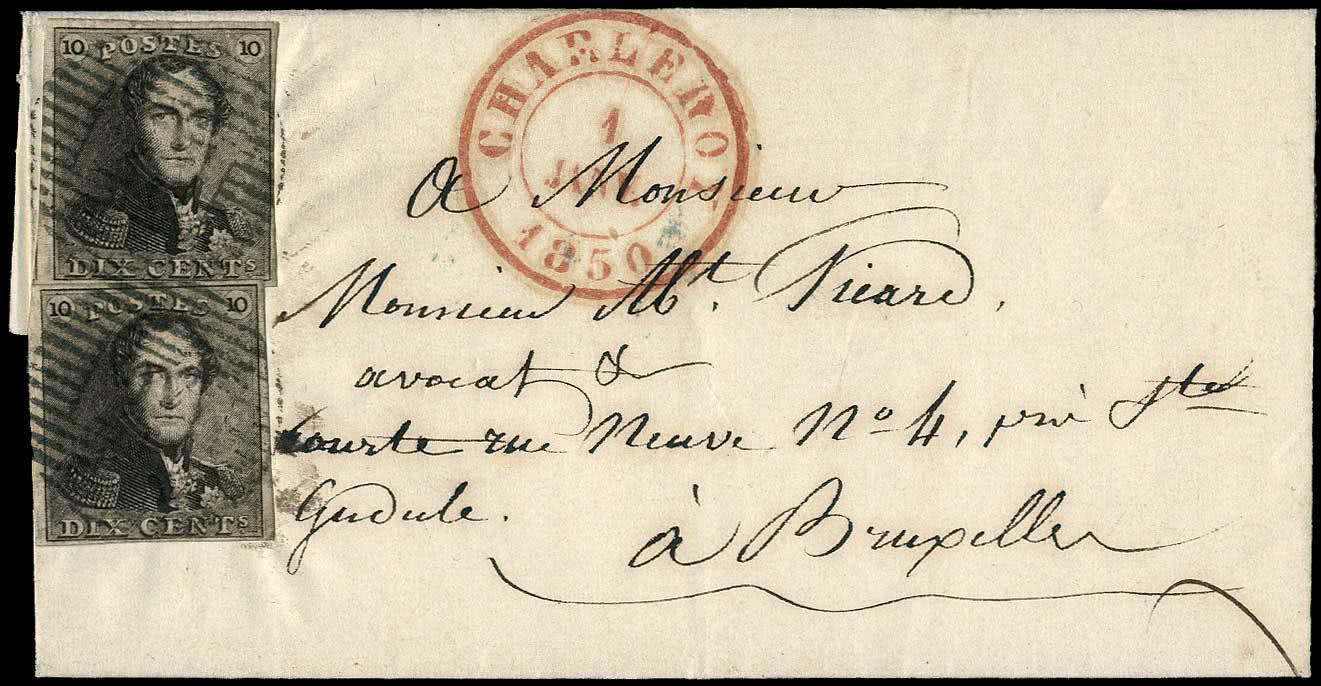 10 POSTES 10
DIX CENTS
10 POSTES 10
DIX CENTS
CHARLEROY
1
JANV
1850
à Monsieur
Monsieur Mt. Picard,
avocat &
Courte rue Neuve No 4, près Ste
Gudule.
à Bruxelles